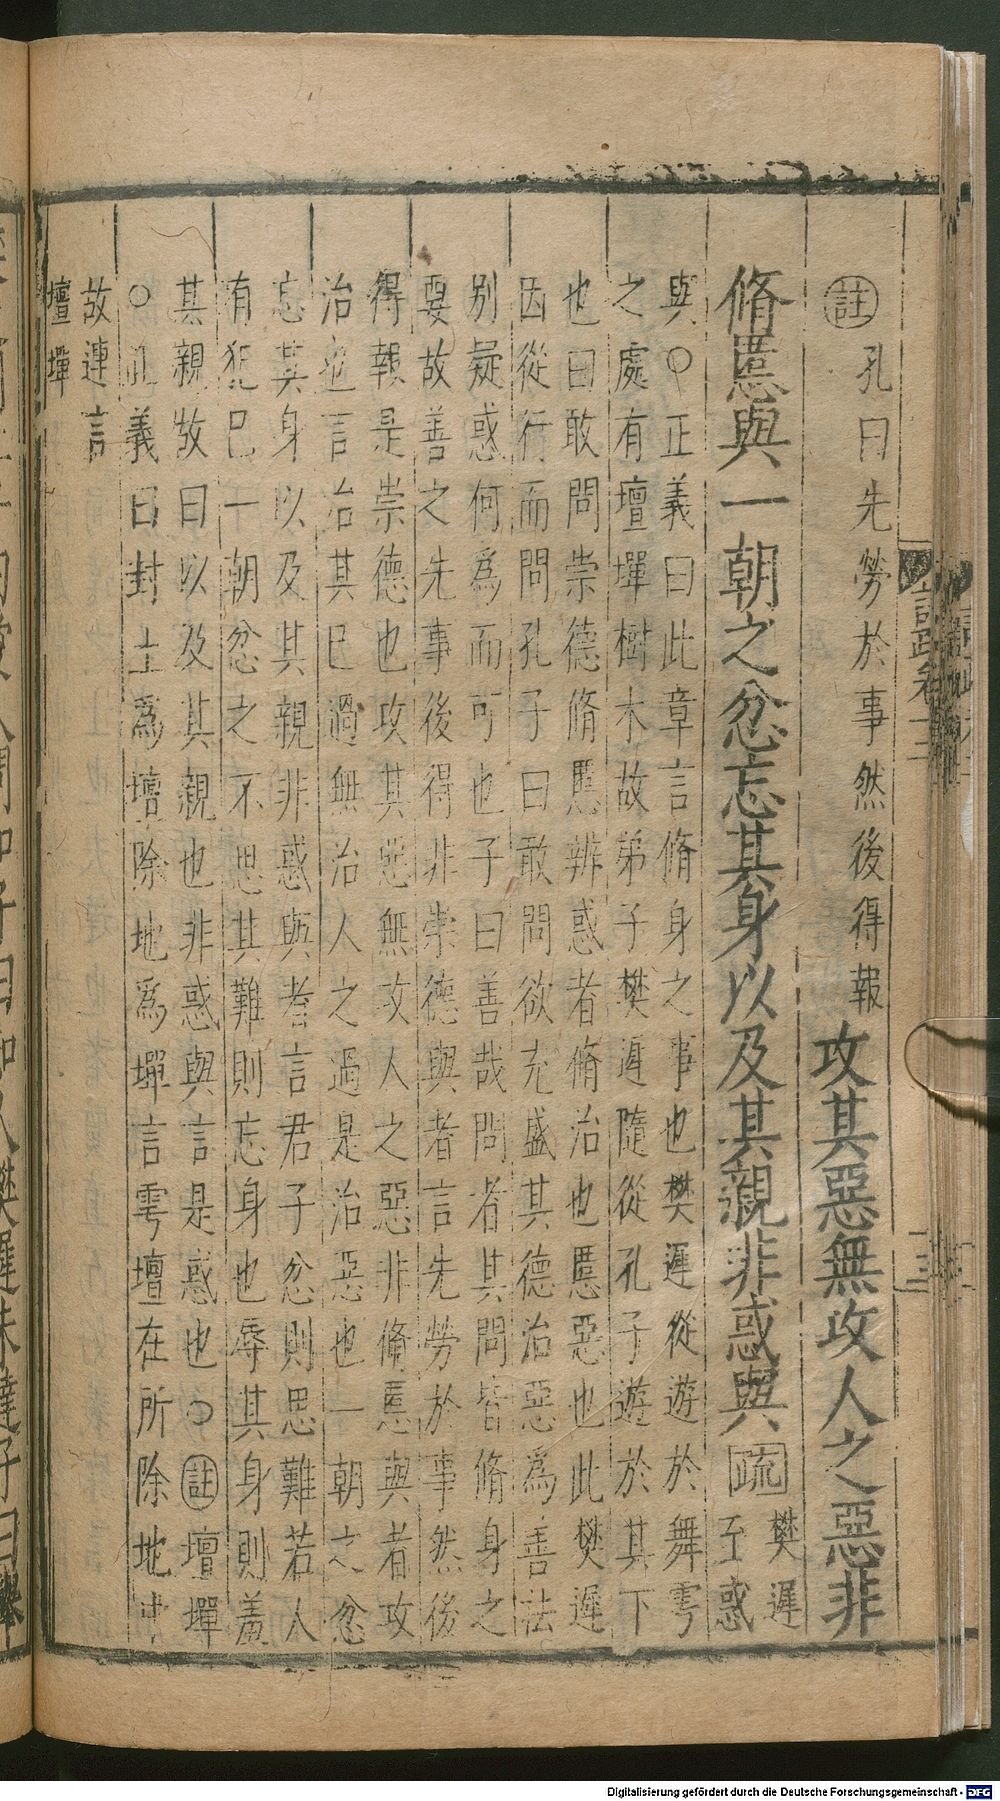 註孔曰先勞於事然後得報攻其惡無攻人之惡非
脩慝與一朝之忿忘其身以及其親非惑與疏樊遲
至惑
與〇正義曰此章言脩身之事也樊遲從遊於舞雩
之處有壇墠樹木故弟子樊遲隨從孔子遊於其下
也曰敢問崇德脩慝辨惑者脩治也慝惡也此樊遲
因從行而問孔子曰敢問欲充盛其德治惡爲善法
別疑惑何爲而可也子曰善哉問者其問皆脩身之
要故善之先事後得非崇德與者言先勞於事然後
得報是崇德也攻其惡無攻人之惡非脩慝與者攻
治也言治其己過無治人之過是治惡也一朝之忿
忘其身以及其親非惑與者言君子忿則思難若人
有犯己一朝忿之不思其難則忘身也辱其身則羞
其親故曰以及其親也非惑與言是惑也〇註壇墠
〇正義曰封土爲壇除地爲墠言雩壇在所除地中
故連言
壇墠
註疏卷十二
十三
Digitalisierung gefördert durch die Deutsche Forschungsgemeinschaft - DFG